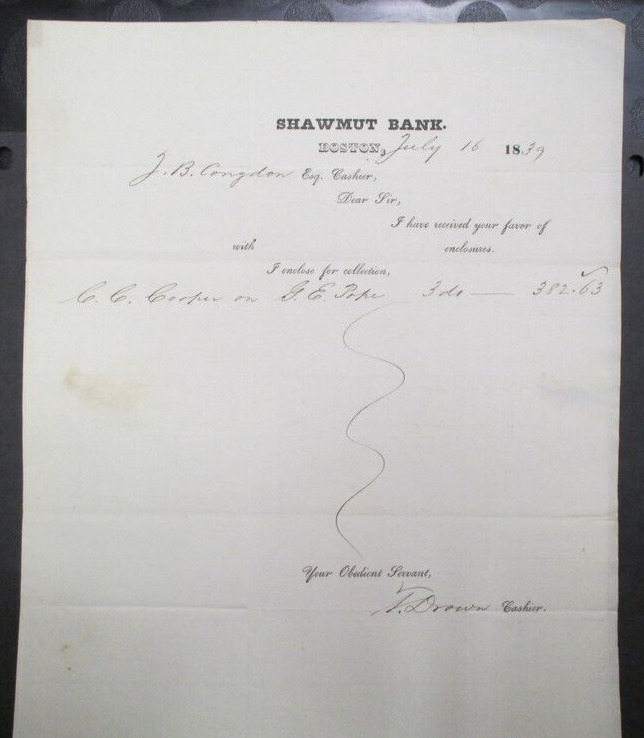 SHAWMUT BANK.
BOSTON, July 16 1839
J. B. Congdon Esq. Cashier,
Dear Sir,
I have received your favor of
with enclosures.
I enclose for collection,
C. C. Cooper on G. E. Pope 3 ds — 382.63
Your Obedient Servant,
T. Drown Cashier.